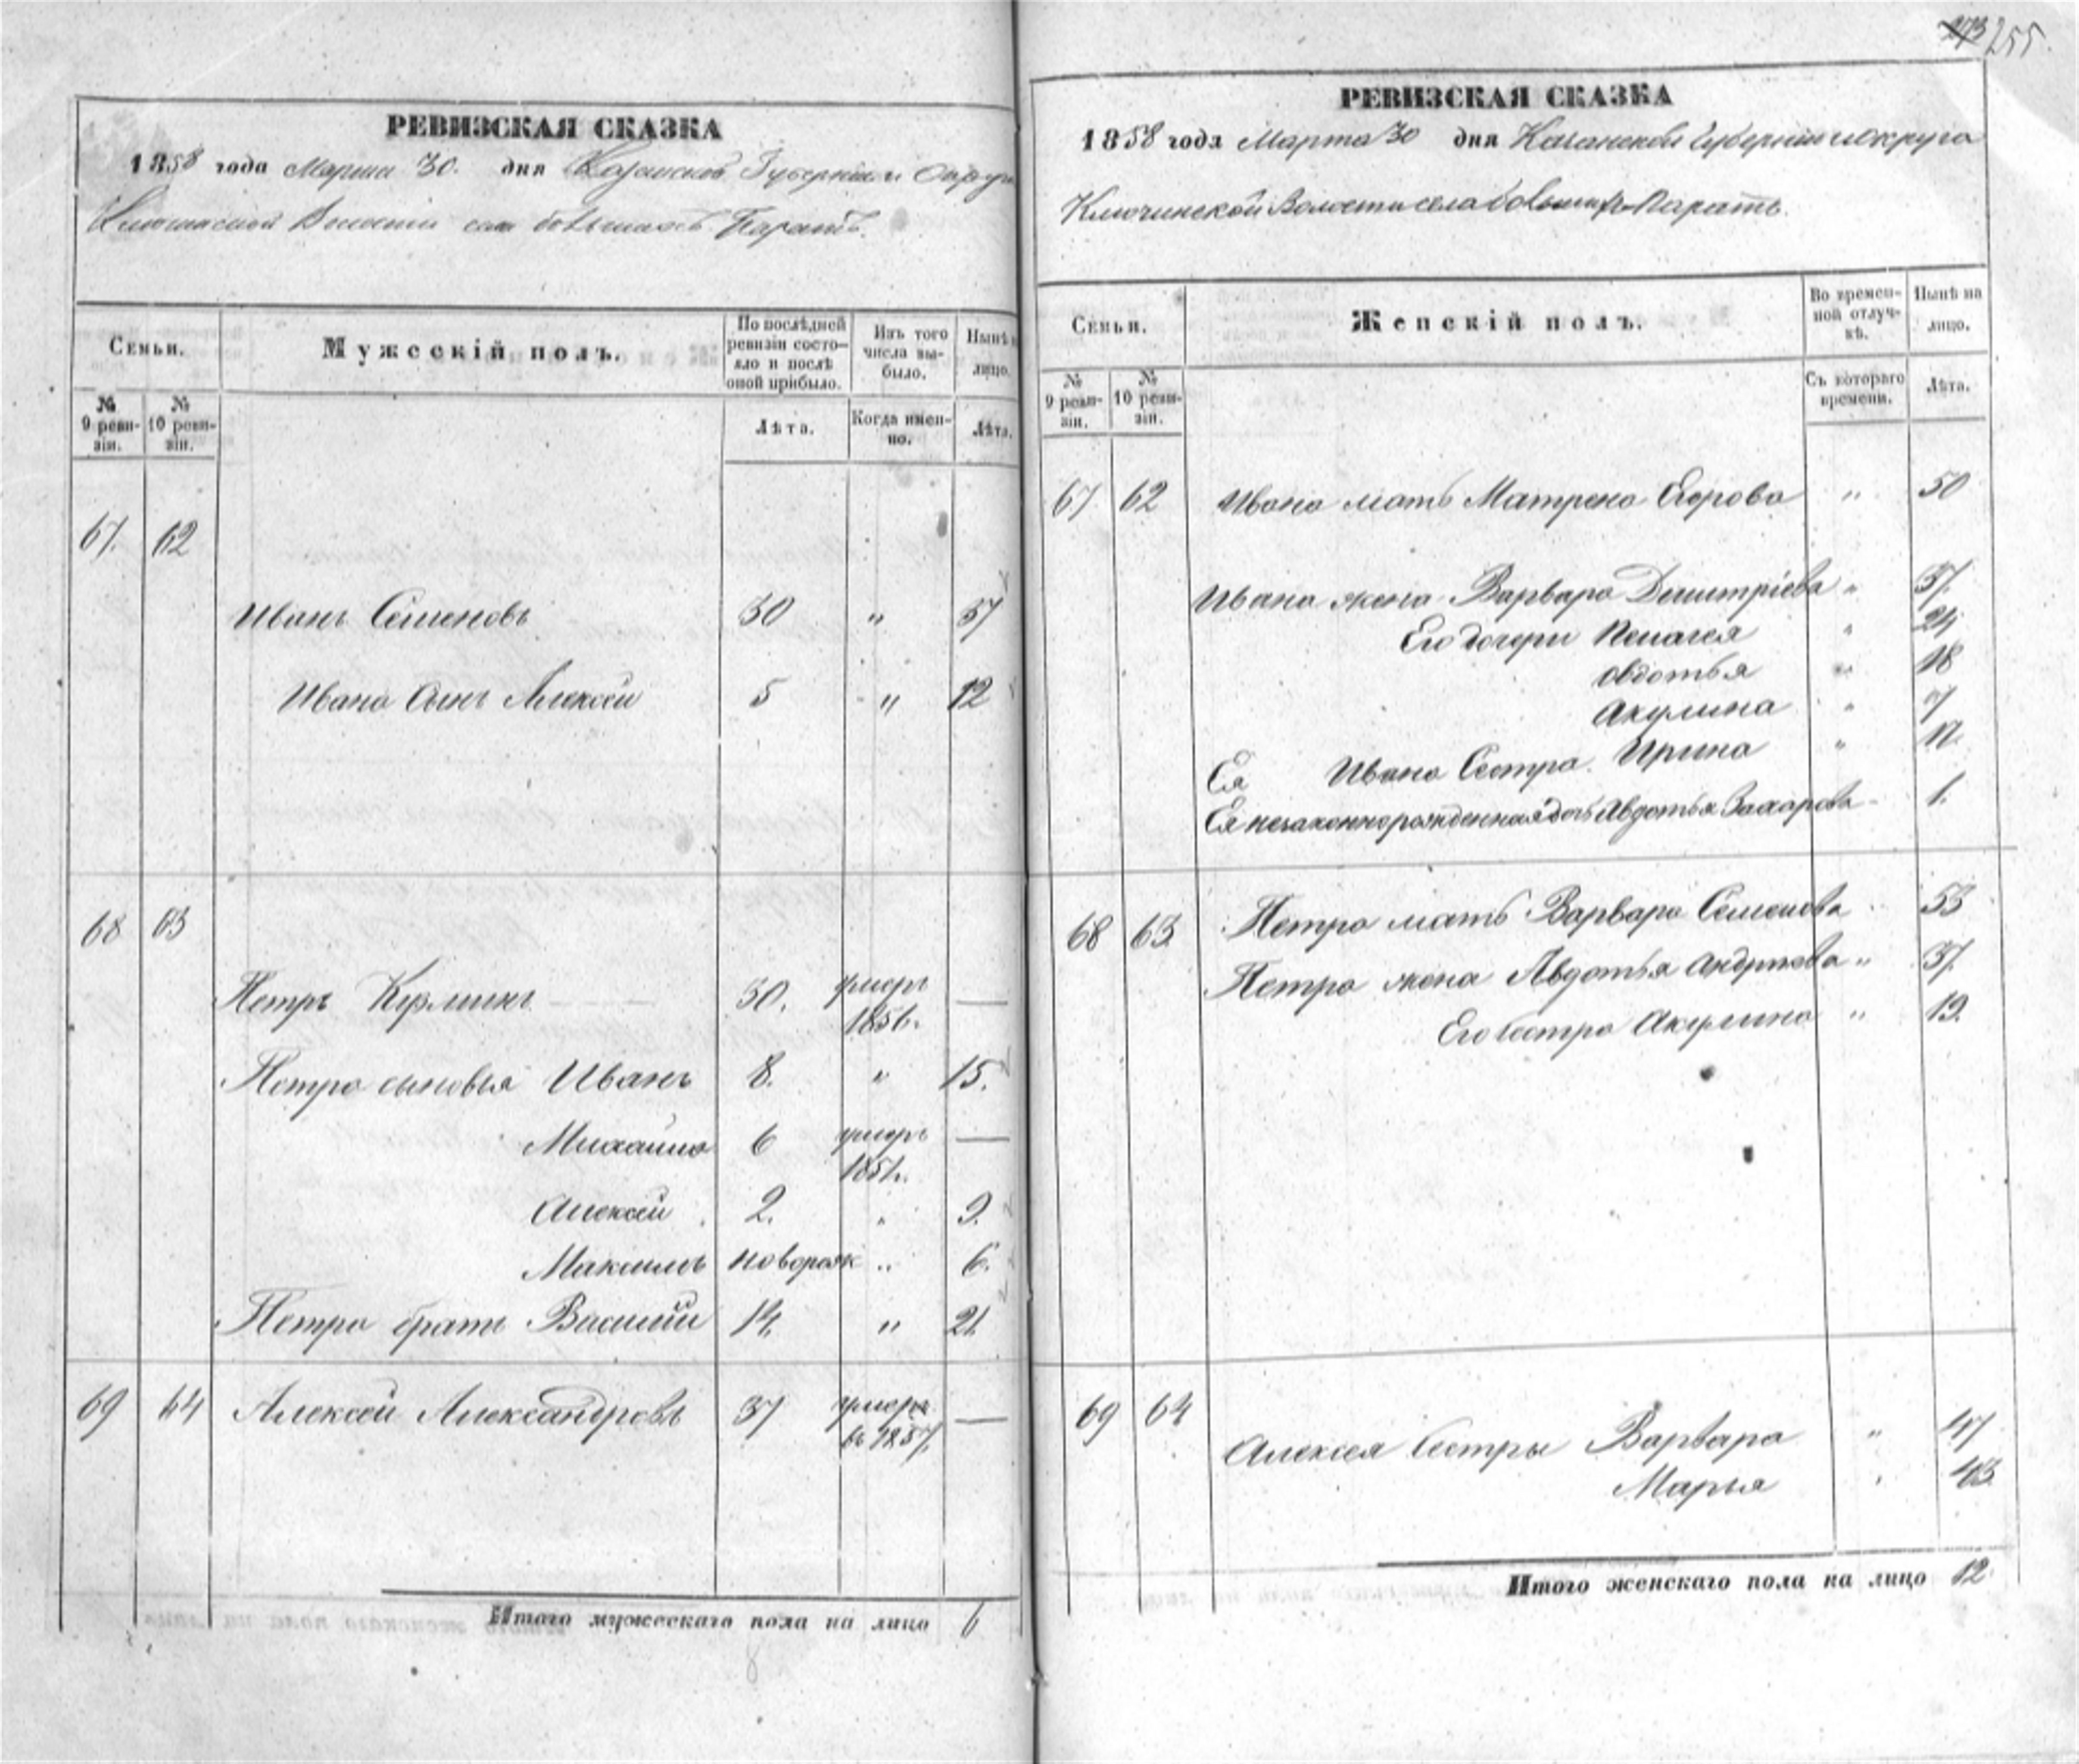 РЕВИЗСКАЯ СКАЗКА
1858 года Марта 30. дня Казанской Губернии и Округа
Ключинской Волости села Большихъ Паратъ.
Семьи.
Мужескій полъ.
По послѣдней ревизіи состояло и послѣ оной прибыло.
Изъ того числа выбыло.
Нынѣ лицо.
№ 9 ревизіи.
№ 10 ревизіи.
Лѣта.
Когда именно.
Лѣта.
67. 62
Иванъ Семеновъ 30 " 37
Ивана Сынъ Алексѣй 5 " 12
68 63
Петръ Кузминъ 30. умеръ —
1856.
Петра сыновья Иванъ 8. " 15.
Михайла 6 умеръ —
1851.
Алексѣй 2. " 9.
Максимъ новорож " 6.
Петра братъ Василий 14 " 21
69 64 Алексѣй Александровъ 37 умеръ —
въ 1857.
Итого мужескаго пола на лицо 6
8
273 255.
РЕВИЗСКАЯ СКАЗКА
1858 года Марта 30 дня Казанской Губернии и округа
Ключинской Волости села Большихъ Паратъ.
Семьи.
Женскій полъ.
Во временной отлучкѣ.
Нынѣ на лицо.
№ 9 ревизіи.
№ 10 ревизіи.
Съ котораго времени.
Лѣта.
67 62 Ивана мать Матрена Егорова " 50
Ивана жена Варвара Дмитріева " 37.
Его дочери Пелагея " 24
Овдотья " 18
Акулина " 7
Ея Ивана Сестра Ирина "
Ея незаконнорожденная дочь Авдотья Захарова 1.
68 63 Петра мать Варвара Семенова 53
Петра жена Авдотья Андреева " 37.
Его сестра Акулина " 19.
69 64
Алексея Сестры Варвара " 47
Марья " 43
Итого женскаго пола на лицо 12.